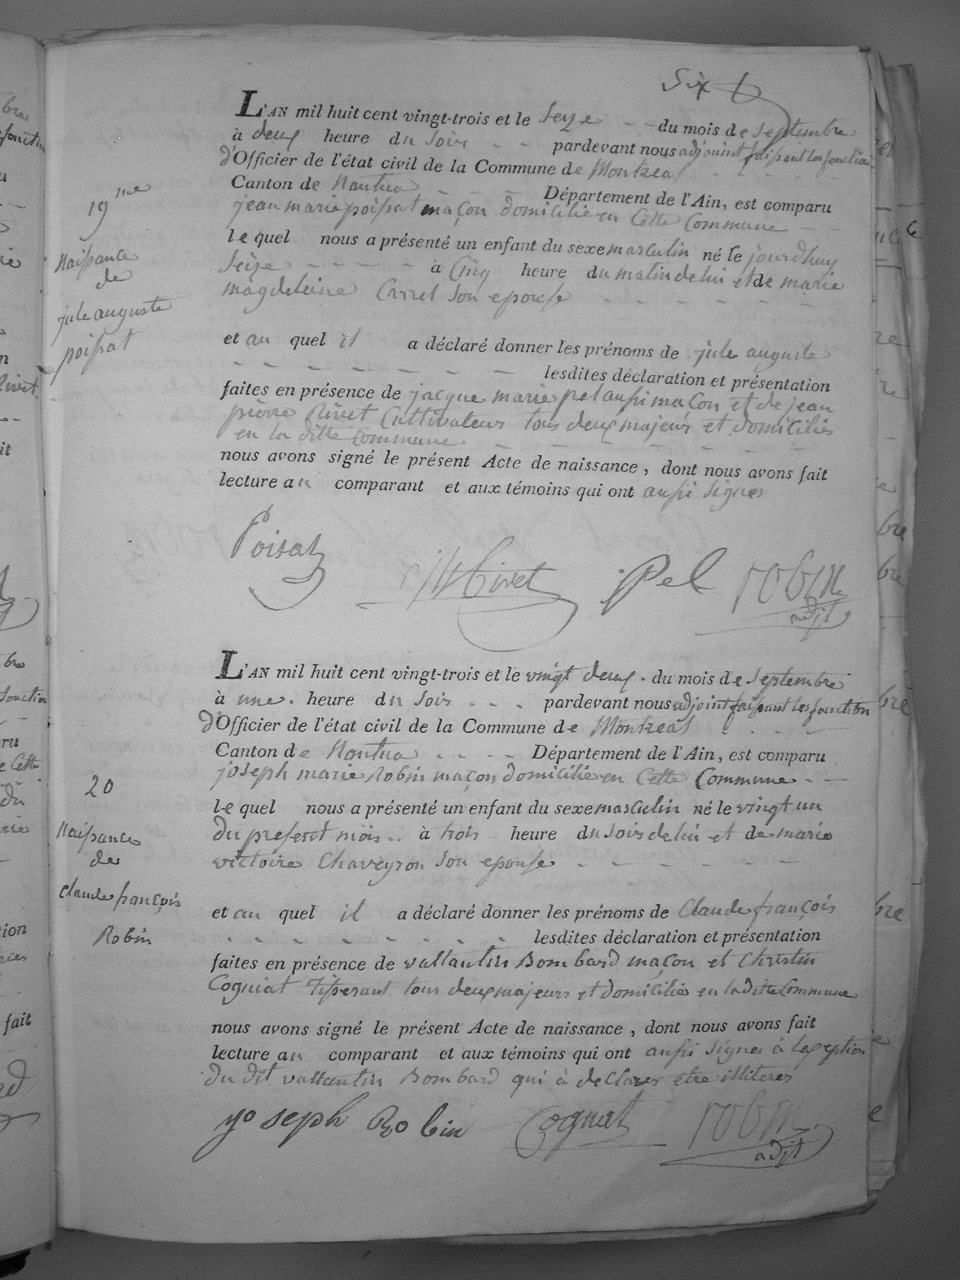 Six
L'AN mil huit cent vingt-trois et le seize - - du mois de septembre
à deux heure du soir - - pardevant nous adjoint faisant les fonction
d'Officier de l'état civil de la Commune de Montreal
Canton de Nantua - - - - Département de l'Ain, est comparu
jean marie poisat maçon domicilié en Cette Commune - -
le quel nous a présenté un enfant du sexe masculin né le jourdhuy
seize - - - - - à Cinq heure du matin de lui et de marie
magdeleine Carrel son epouse - - - - - - -
19me
Naissance
de
jule auguste
poisat
et au quel il a déclaré donner les prénoms de jule auguste
- - - - - - - - lesdites déclaration et présentation
faites en présence de jacque marie pel aussi maçon et de jean
pierre Rivet Cultivateurs tous deux majeurs et domiciliés
en la ditte Commune - - - - - - - -
nous avons signé le présent Acte de naissance, dont nous avons fait
lecture au comparant et aux témoins qui ont aussi signes
Poisat Rivet Pel robin
adjt
L'AN mil huit cent vingt-trois et le vingt deux - du mois de septembre
à une - heure du soir - - - pardevant nous adjoint faisant les fonction
d'Officier de l'état civil de la Commune de Montreal
Canton de Nantua - - - - Département de l'Ain, est comparu
joseph marie Robin maçon domicilié en Cette Commune - -
le quel nous a présenté un enfant du sexe masculin né le vingt un
du present mois - - à trois heure du soir de lui et de marie
victoire Chaveyron son epouse - - - - - - -
20
Naissance
de
Claude françois
Robin
et au quel il a déclaré donner les prénoms de Claude françois
- - - - - - - - lesdites déclaration et présentation
faites en présence de vallantin Bombard maçon et Christin
Cogniat Tisserant tous deux majeurs et domiciliés en la ditte Commune
nous avons signé le présent Acte de naissance, dont nous avons fait
lecture au comparant et aux témoins qui ont aussi signes à lexeption
du dit vallantin Bombard qui à declarer etre illiteres
yoseph Robin Cogniat robin
adjt